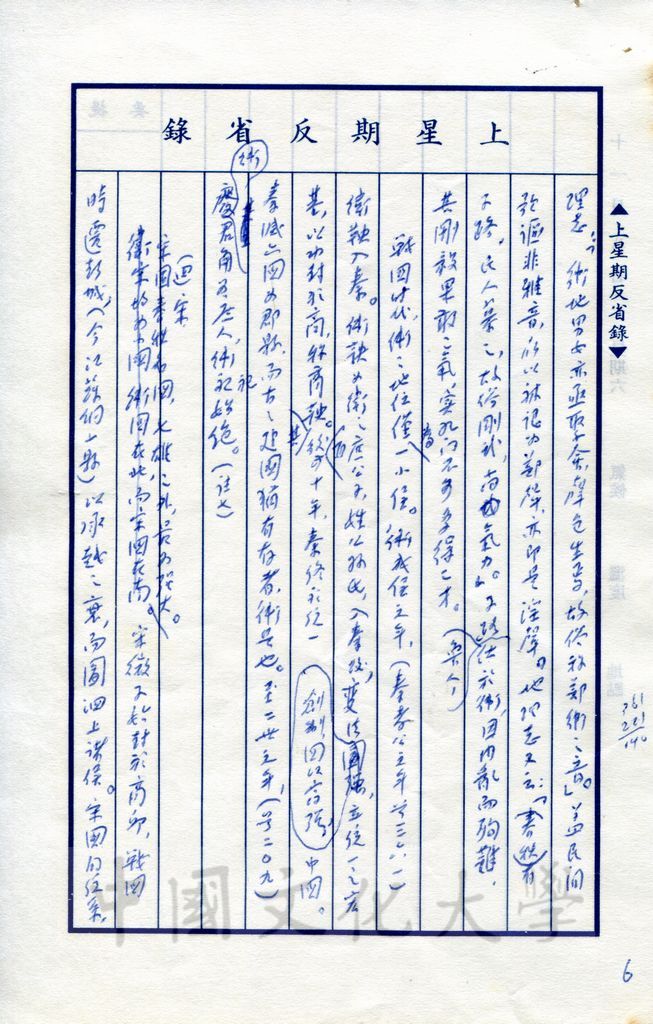 上星期反省錄
▲上星期反省錄▼
理志：「衛地男女亦亟聚會，聲色生焉，故俗稱鄭衛之音。」蓋民間
歌謳非雅音，所以被認為鄭聲，亦即是淫聲。地理志又云：「春秋有
子路，民人慕之，故俗剛武，尚氣力。」子路仕於衛，因內亂而殉難，
其剛毅果敢之氣，實孔門不可多得之才。
戰國時代，衛之地位僅一小侯。衛成侯立年，（秦孝公立年 前三六一）
衛鞅入秦。衛鞅為衛之庶公子，姓公孫氏，入秦後，變法圖強，立統一之宏
基，以功封於商，稱商鞅。後百十年，秦終於統一中國。
創制國以富強，
秦滅六國為郡縣，而古之建國猶有存者，衛是也。至二世元年，（前二〇九）
衛
廢君角為庶人，衛祀始絕。（註七）
（四）宋
宋國春秋名國，七雄之外，最為強大。
衛宋均為小國，衛國在北，而宋國在南。宋微子始封於商邱，戰國
時遷彭城，（今江蘇銅山縣）以承越之衰，而圖泗上諸侯。宋國的位系，
361
221
140
6
中國文化大學